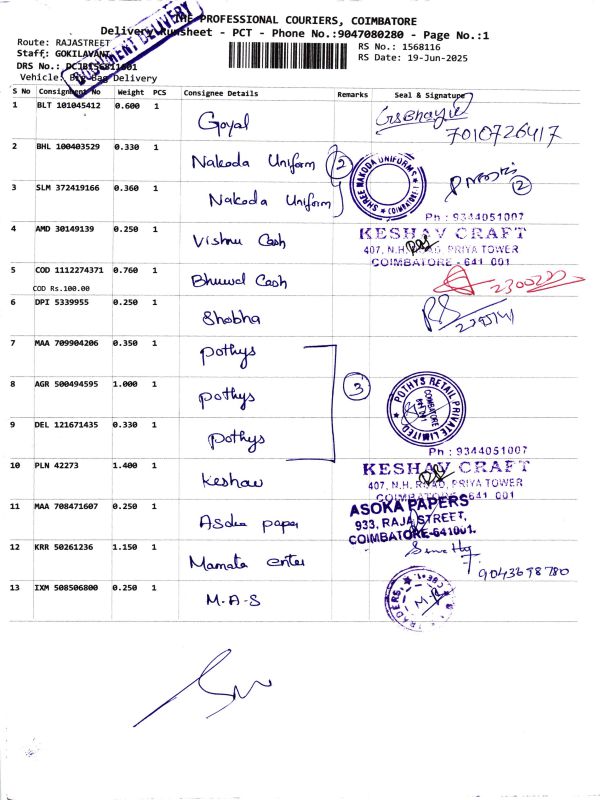 THE PROFESSIONAL COURIERS, COIMBATORE
Delivery Runsheet - PCT - Phone No.:9047080280 - Page No.:1
DOCUMENT DELIVERY
Route: RAJASTREET
Staff: GOKILAVANI
DRS No.:
Vehicle: Delivery
RS No.: 1568116
RS Date: 19-Jun-2025
S No Consignment No Weight PCS Consignee Details Remarks Seal & Signature
1 BLT 101045412 0.600 1 Goyal
7010726417
2 BHL 100403529 0.330 1 Nakoda Uniform 2
SHREE NAKODA UNIFORMS
12
3 SLM 372419166 0.360 1 Nakoda Uniform
Ph : 9344051007
4 AMD 30149139 0.250 1 Vishnu Cash
KESHAV CRAFT
407, N.H. ROAD, PRIYA TOWER
COIMBATORE - 641 001
5 COD 1112274371 0.760 1 Bhuwal Cash
COD Rs.100.00
6 DPI 5339955 0.250 1 Shobha
7 MAA 709904206 0.350 1 Pothys
8 AGR 500494595 1.000 1 Pothys 3
POTHYS RETAIL PRIVATE LIMITED
COIMBATORE
9 DEL 121671435 0.330 1 Pothys
Ph : 9344051007
10 PLN 42273 1.400 1 Keshav
KESHAV CRAFT
407, N.H. ROAD, PRIYA TOWER
COIMBATORE - 641 001
11 MAA 708471607 0.250 1 Asoka paper
ASOKA PAPERS
933, RAJA STREET,
COIMBATORE-641001.
12 KRR 50261236 1.150 1 Mamata enter
9043698780
13 IXM 508506800 0.250 1 M.A.S
TRADERS